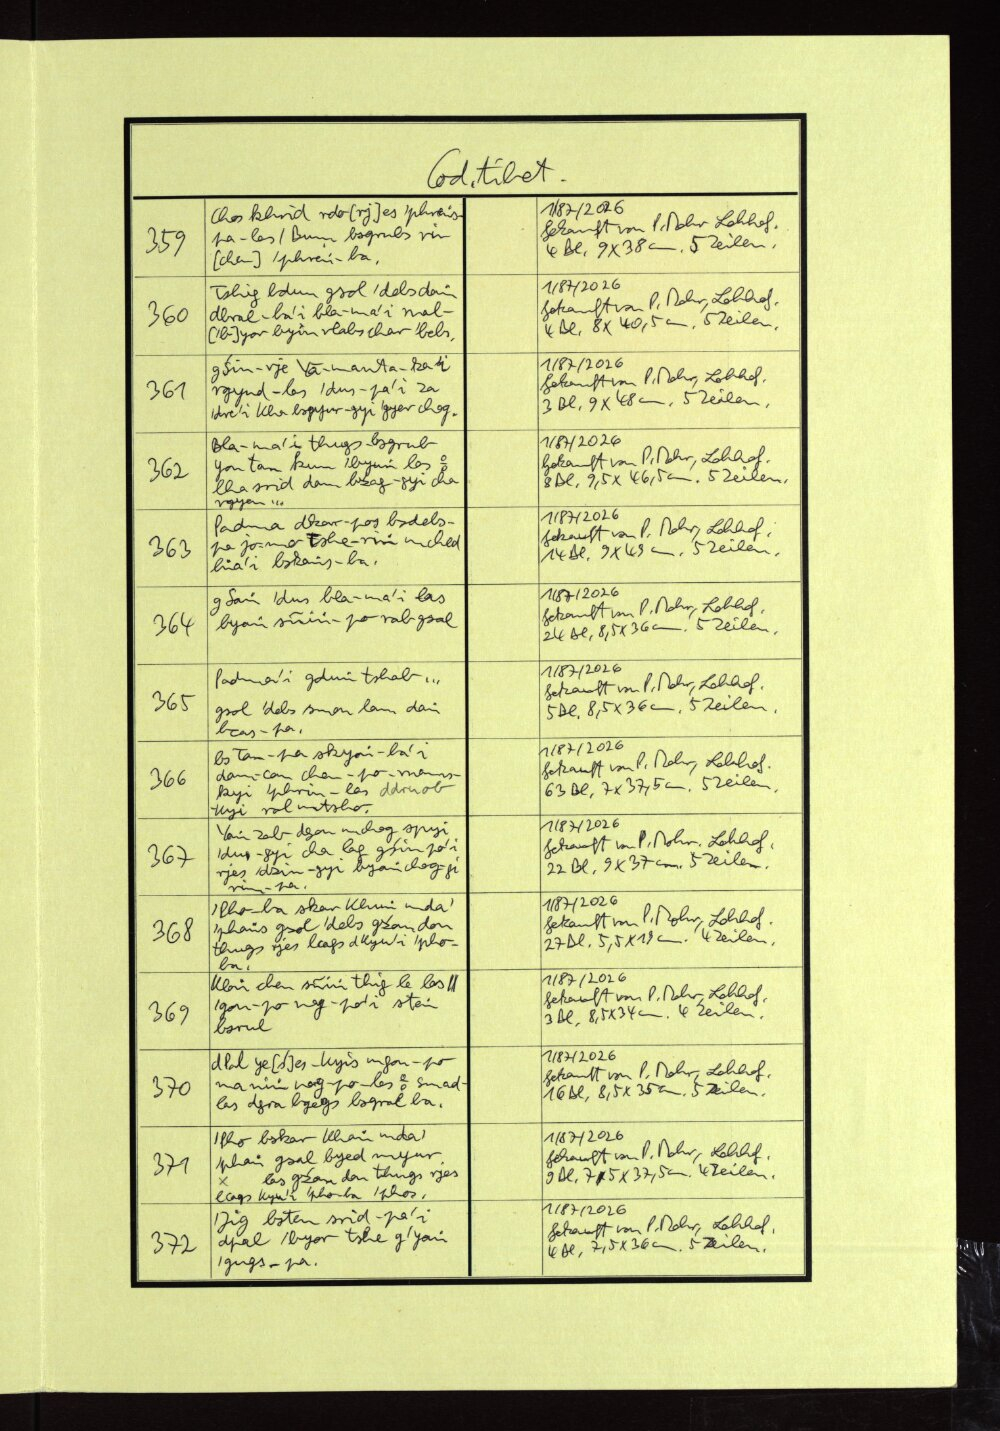 Cod. tibet.
359
Chos khrid rdo[rj]es 'phreṅs-
pa-las / Bum bsgrubs rin
[chen] 'phreṅ-ba.
1/87/2026
Gekauft von P. Mohr Lehhof.
4 Bl. 9x38 cm. 5 Zeilen.
360
Tshig bdun gsol 'debs daṅ
dbral-ba'i bla-ma'i rnal-
['b]yor byin rlabs char 'bebs.
1/87/2026
Gekauft von P. Mohr, Lehhof.
4 Bl. 8x40,5 cm. 5 Zeilen.
361
gŚin-rje Ya-manta-ka'i
rgyud-las 'dus-pa'i za
'dre'i kha bsgyur-gyi 'gyer chog.
1/87/2026
Gekauft von P. Mohr, Lehhof.
3 Bl. 9x48 cm. 5 Zeilen.
362
Bla-ma'i thugs-bsgrub
yon tan kun 'byuṅ las
lha srid dam bźag-gyi cha
rgyen ...
1/87/2026
Gekauft von P. Mohr, Lehhof.
8 Bl. 9,5x46,5 cm. 5 Zeilen.
363
Padma dkar-pos bsdebs-
pa jo-mo tshe-riṅ mched
lṅa'i bskaṅs-ba.
1/87/2026
Gekauft von P. Mohr, Lehhof.
14 Bl. 9x49 cm. 5 Zeilen.
364
gSaṅ 'dus bla-ma'i las
byaṅ sñiṅ-po rab-gsal
1/87/2026
Gekauft von P. Mohr, Lehhof.
24 Bl. 8,5x36 cm. 5 Zeilen.
365
Padma'i gduṅ tshab ...
gsol 'debs smon lam daṅ
bcas-pa.
1/87/2026
Gekauft von P. Mohr, Lehhof.
5 Bl. 8,5x36 cm. 5 Zeilen.
366
bsTan-pa skyoṅ-ba'i
dam-can chen-po-rnams-
kyi 'phrin-las
kyi rol mtsho.
1/87/2026
Gekauft von P. Mohr, Lehhof.
63 Bl. 7x37,5 cm. 5 Zeilen.
367
Yaṅ zab dgoṅ mchog spyi
'dus-gyi cha lag gśin-po'i
rjes 'dzin-gyi byaṅ chog-gi
rim-pa.
1/87/2026
Gekauft von P. Mohr. Lehhof.
22 Bl. 9x37 cm. 5 Zeilen.
368
'Pho-ba skar khuṅ mda'
'phaṅs gsol 'debs gźan don
thugs rjes lcags dkyu'i 'pho-
ba.
1/87/2026
Gekauft von P. Mohr, Lehhof.
27 Bl. 5,5x19 cm. 4 Zeilen.
369
Kloṅ chen sñiṅ thig le las //
'gon-po nag-po'i steṅ
bsrul
1/87/2026
Gekauft von P. Mohr, Lehhof.
3 Bl. 8,5x34 cm. 4 Zeilen.
370
dPal ye[ś]es-kyis mgon-po
ma niṅ nag-po-las smad-
las dgra bgegs bsgral ba.
1/87/2026
Gekauft von P. Mohr, Lehhof.
16 Bl. 8,5x35 cm. 5 Zeilen.
371
'Pho bskar khaṅ mda'
'phaṅ gsal byed myur
x las gźan don thugs rjes
lcags kyu'i 'pho-ba 'phos.
1/87/2026
Gekauft von P. Mohr, Lehhof.
9 Bl. 7,5x37,5 cm. 4 Zeilen.
372
'Jig bsten srid-pa'i
dpal 'byor tshe g'yaṅ
'gugs-pa.
1/87/2026
Gekauft von P. Mohr, Lehhof.
4 Bl. 7,5x36 cm. 5 Zeilen.